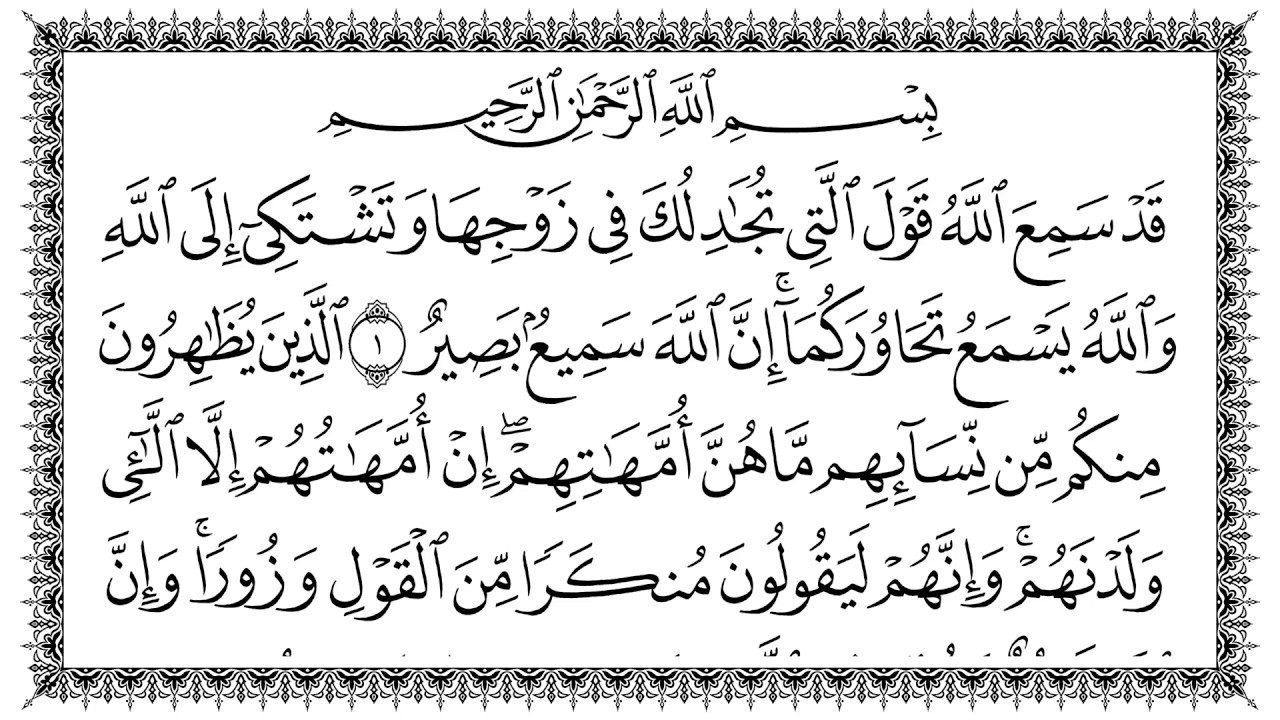 بِسْمِ ٱللَّهِ ٱلرَّحْمَٰنِ ٱلرَّحِيمِ
قَدْ سَمِعَ ٱللَّهُ قَوْلَ ٱلَّتِى تُجَٰدِلُكَ فِى زَوْجِهَا وَتَشْتَكِىٓ إِلَى ٱللَّهِ
وَٱللَّهُ يَسْمَعُ تَحَاوُرَكُمَآ ۚ إِنَّ ٱللَّهَ سَمِيعٌۢ بَصِيرٌ ١ ٱلَّذِينَ يُظَٰهِرُونَ
مِنكُم مِّن نِّسَآئِهِم مَّا هُنَّ أُمَّهَٰتِهِمْ ۖ إِنْ أُمَّهَٰتُهُمْ إِلَّا ٱلَّٰٓـِٔى
وَلَدْنَهُمْ ۚ وَإِنَّهُمْ لَيَقُولُونَ مُنكَرًا مِّنَ ٱلْقَوْلِ وَزُورًا ۚ وَإِنَّ